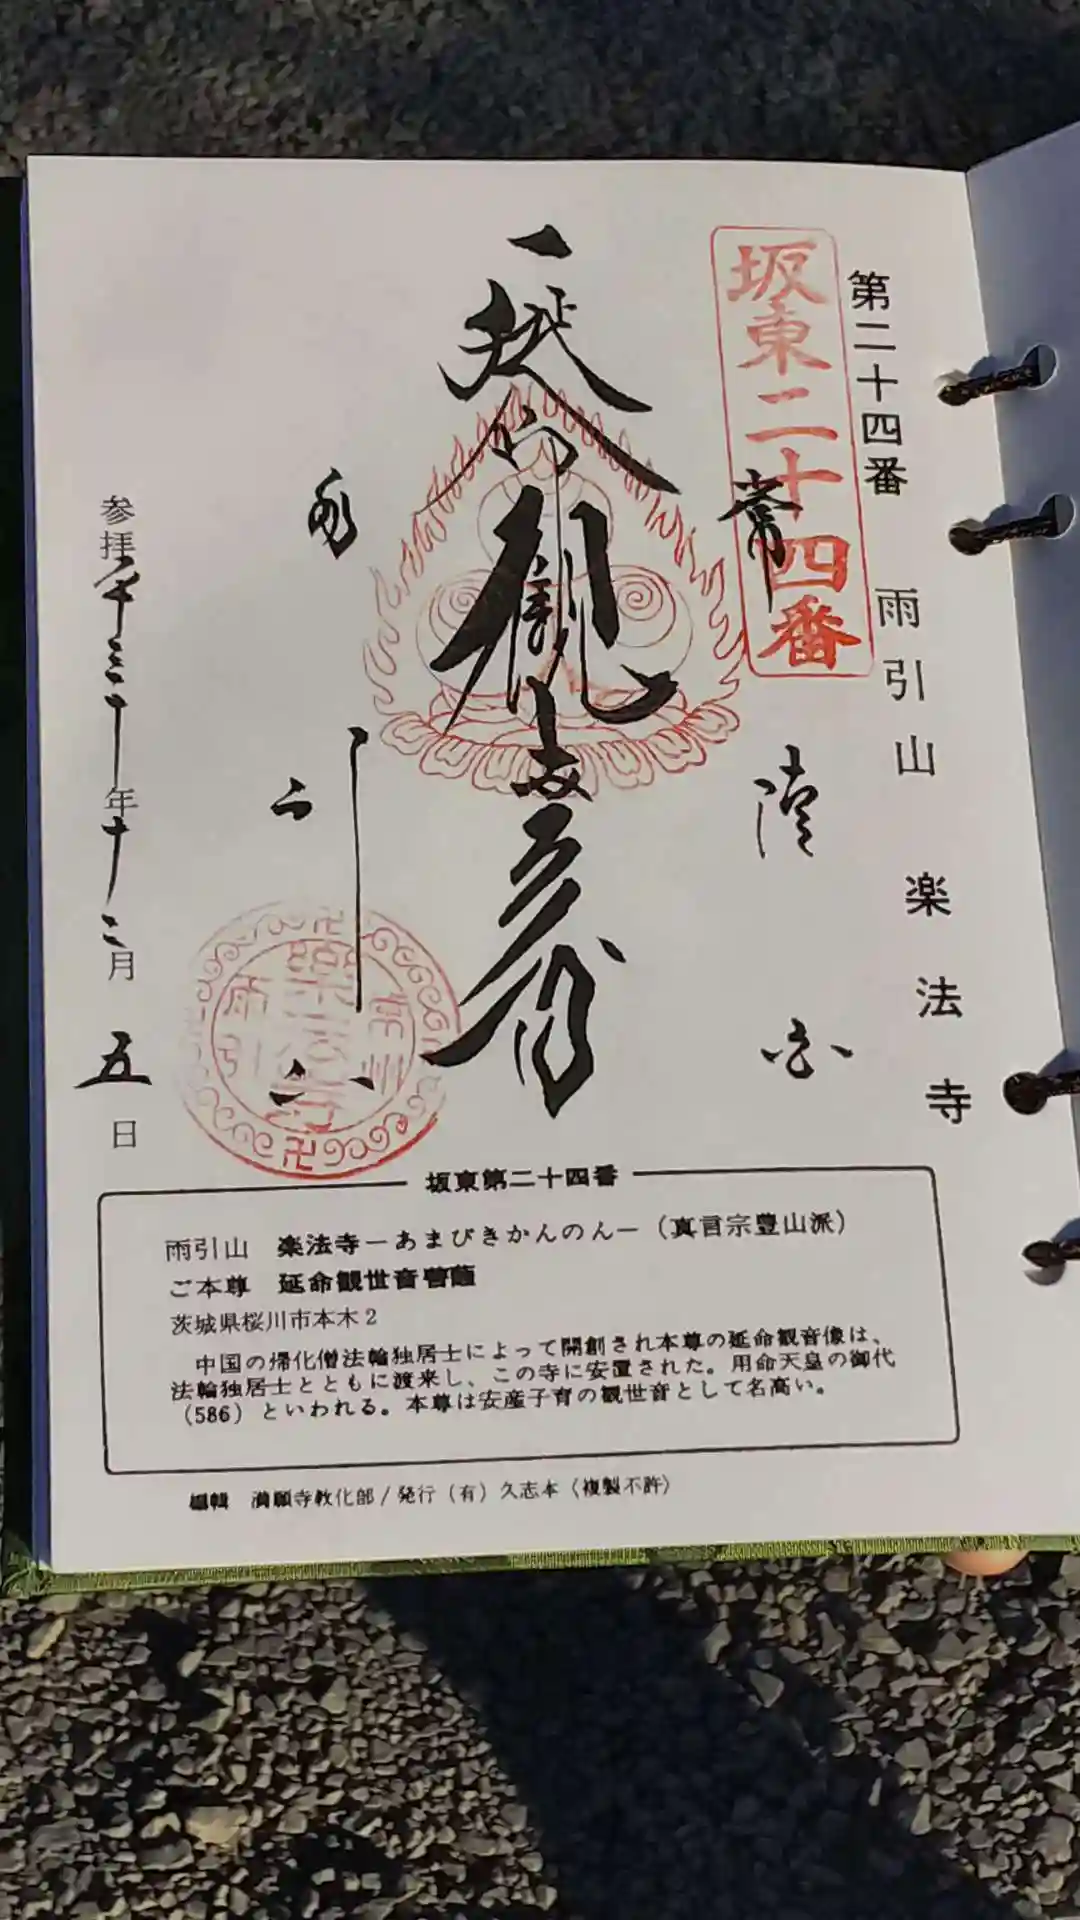 第二十四番 雨引山 楽法寺
坂東二十四番
常陸国
一
延命観世音
雨引山
参拝平三十年十二月五日
坂東第二十四番
雨引山 楽法寺－あまびきかんのん－（真言宗豊山派）
ご本尊 延命観世音菩薩
茨城県桜川市本木2
中国の帰化僧法輪独居士によって開創され本尊の延命観音像は、
法輪独居士とともに渡来し、この寺に安置された。用命天皇の御代
（586）といわれる。本尊は安産子育の観世音として名高い。
編輯 満願寺教化部/発行（有）久志本〈複製不許〉